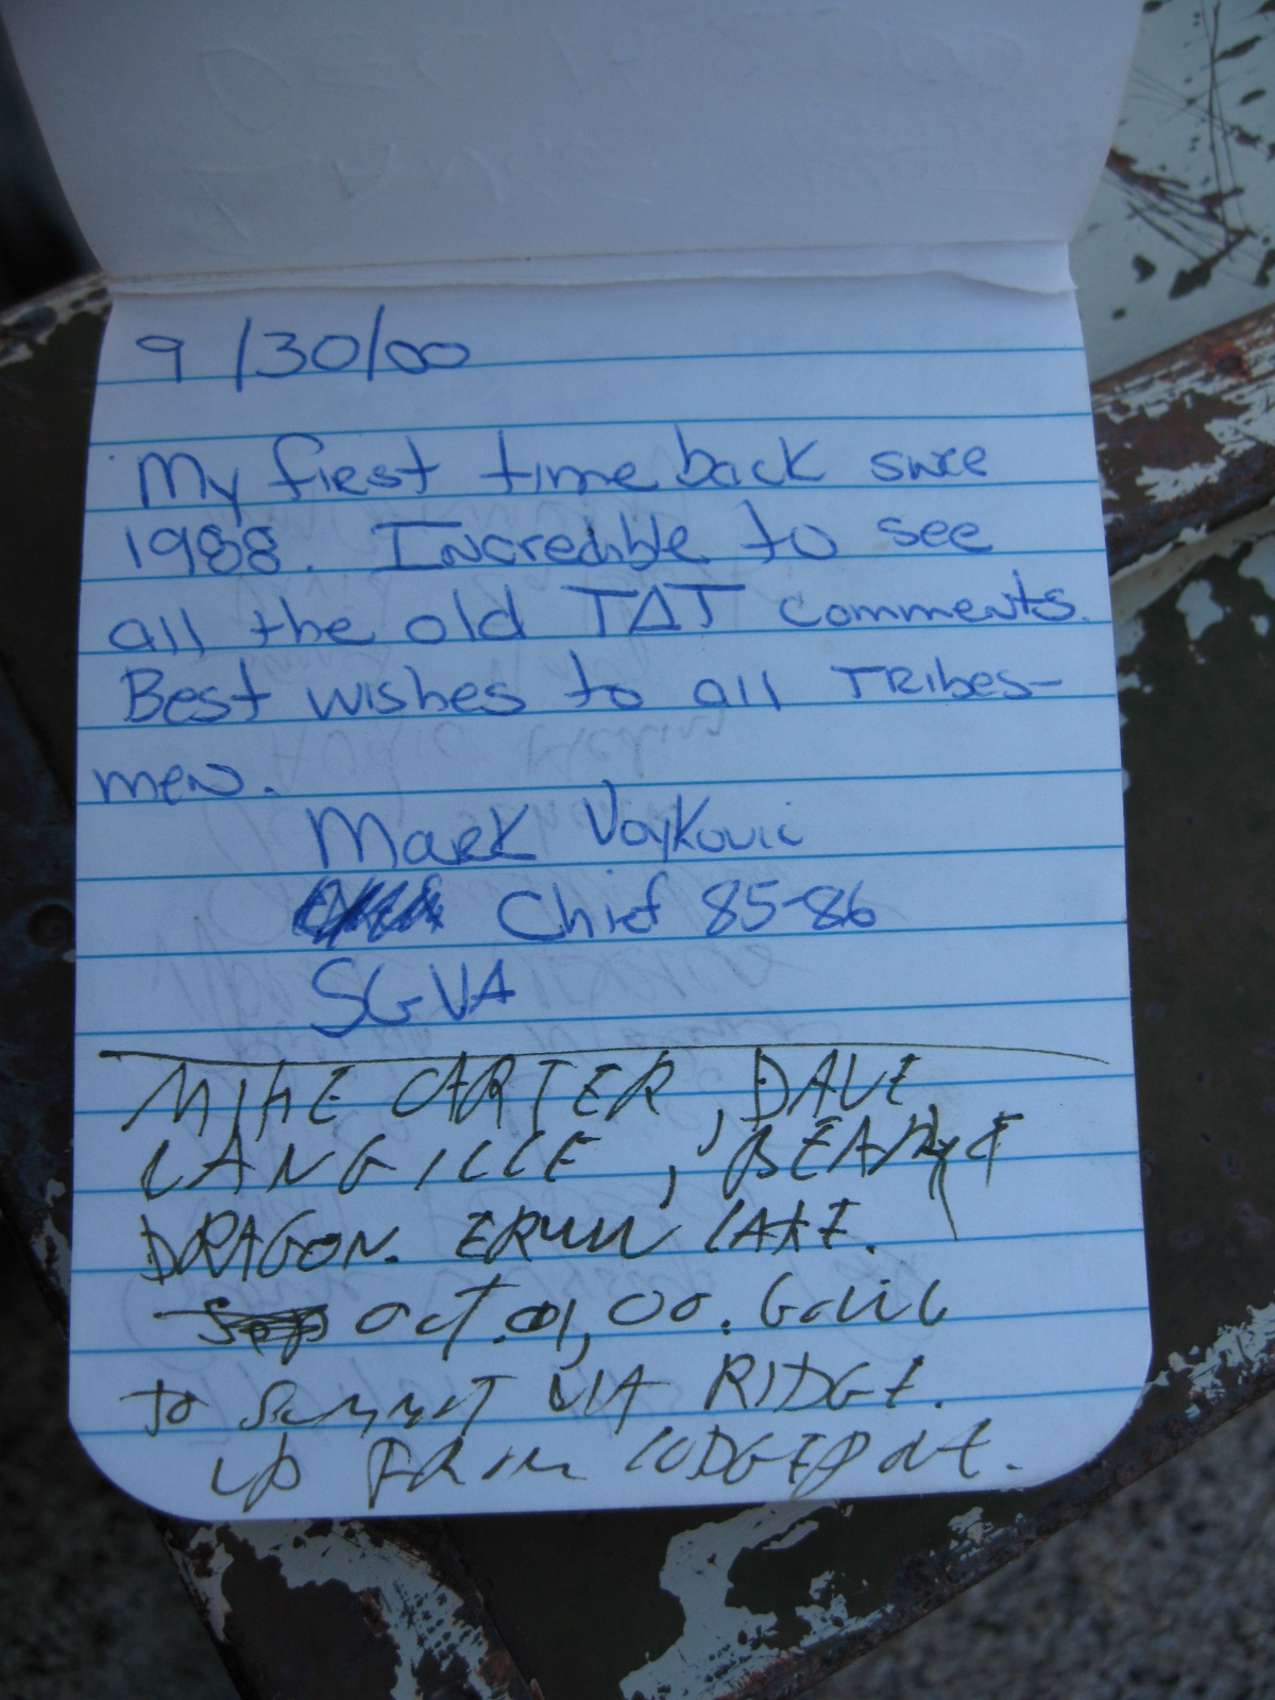 9/30/00
My first time back since
1988. Incredible to see
all the old TAT comments.
Best wishes to all Tribes-
men.
Mark Voykovic
Chief 85-86
SGVA
MIKE CARTER, DAVE
LANGILLE,
DRAGON. LAKE.
Oct. 01, 00.
to Summit VIA RIDGE.
up FROM LODGEPOLE.